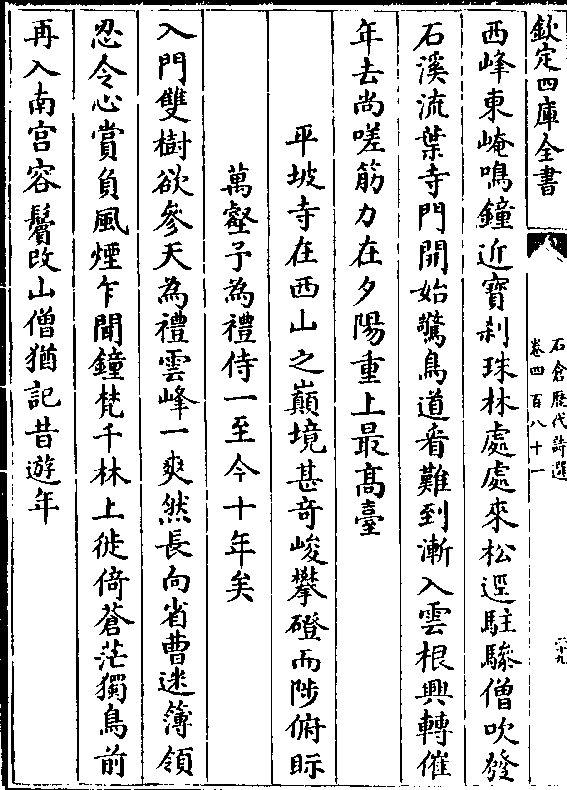 欽定四庫全書
石倉歷代詩選
卷四百八十一
二十九
西峰東崦鳴鐘近寳刹珠林處處來松逕駐驂僧吹發
石溪流葉寺門開始驚鳥道看難到漸入雲根興轉催
年去尚嗟筋力在夕陽重上最髙臺
平坡寺在西山之巔境甚竒峻攀磴而陟俯眎
萬壑予為禮侍一至今十年矣
入門雙樹欲參天為禮雲峰一爽然長向省曹迷簿領
忍令心賞負風煙乍聞鐘梵千林上徙倚蒼茫獨鳥前
再入南宫容鬢改山僧猶記昔遊年